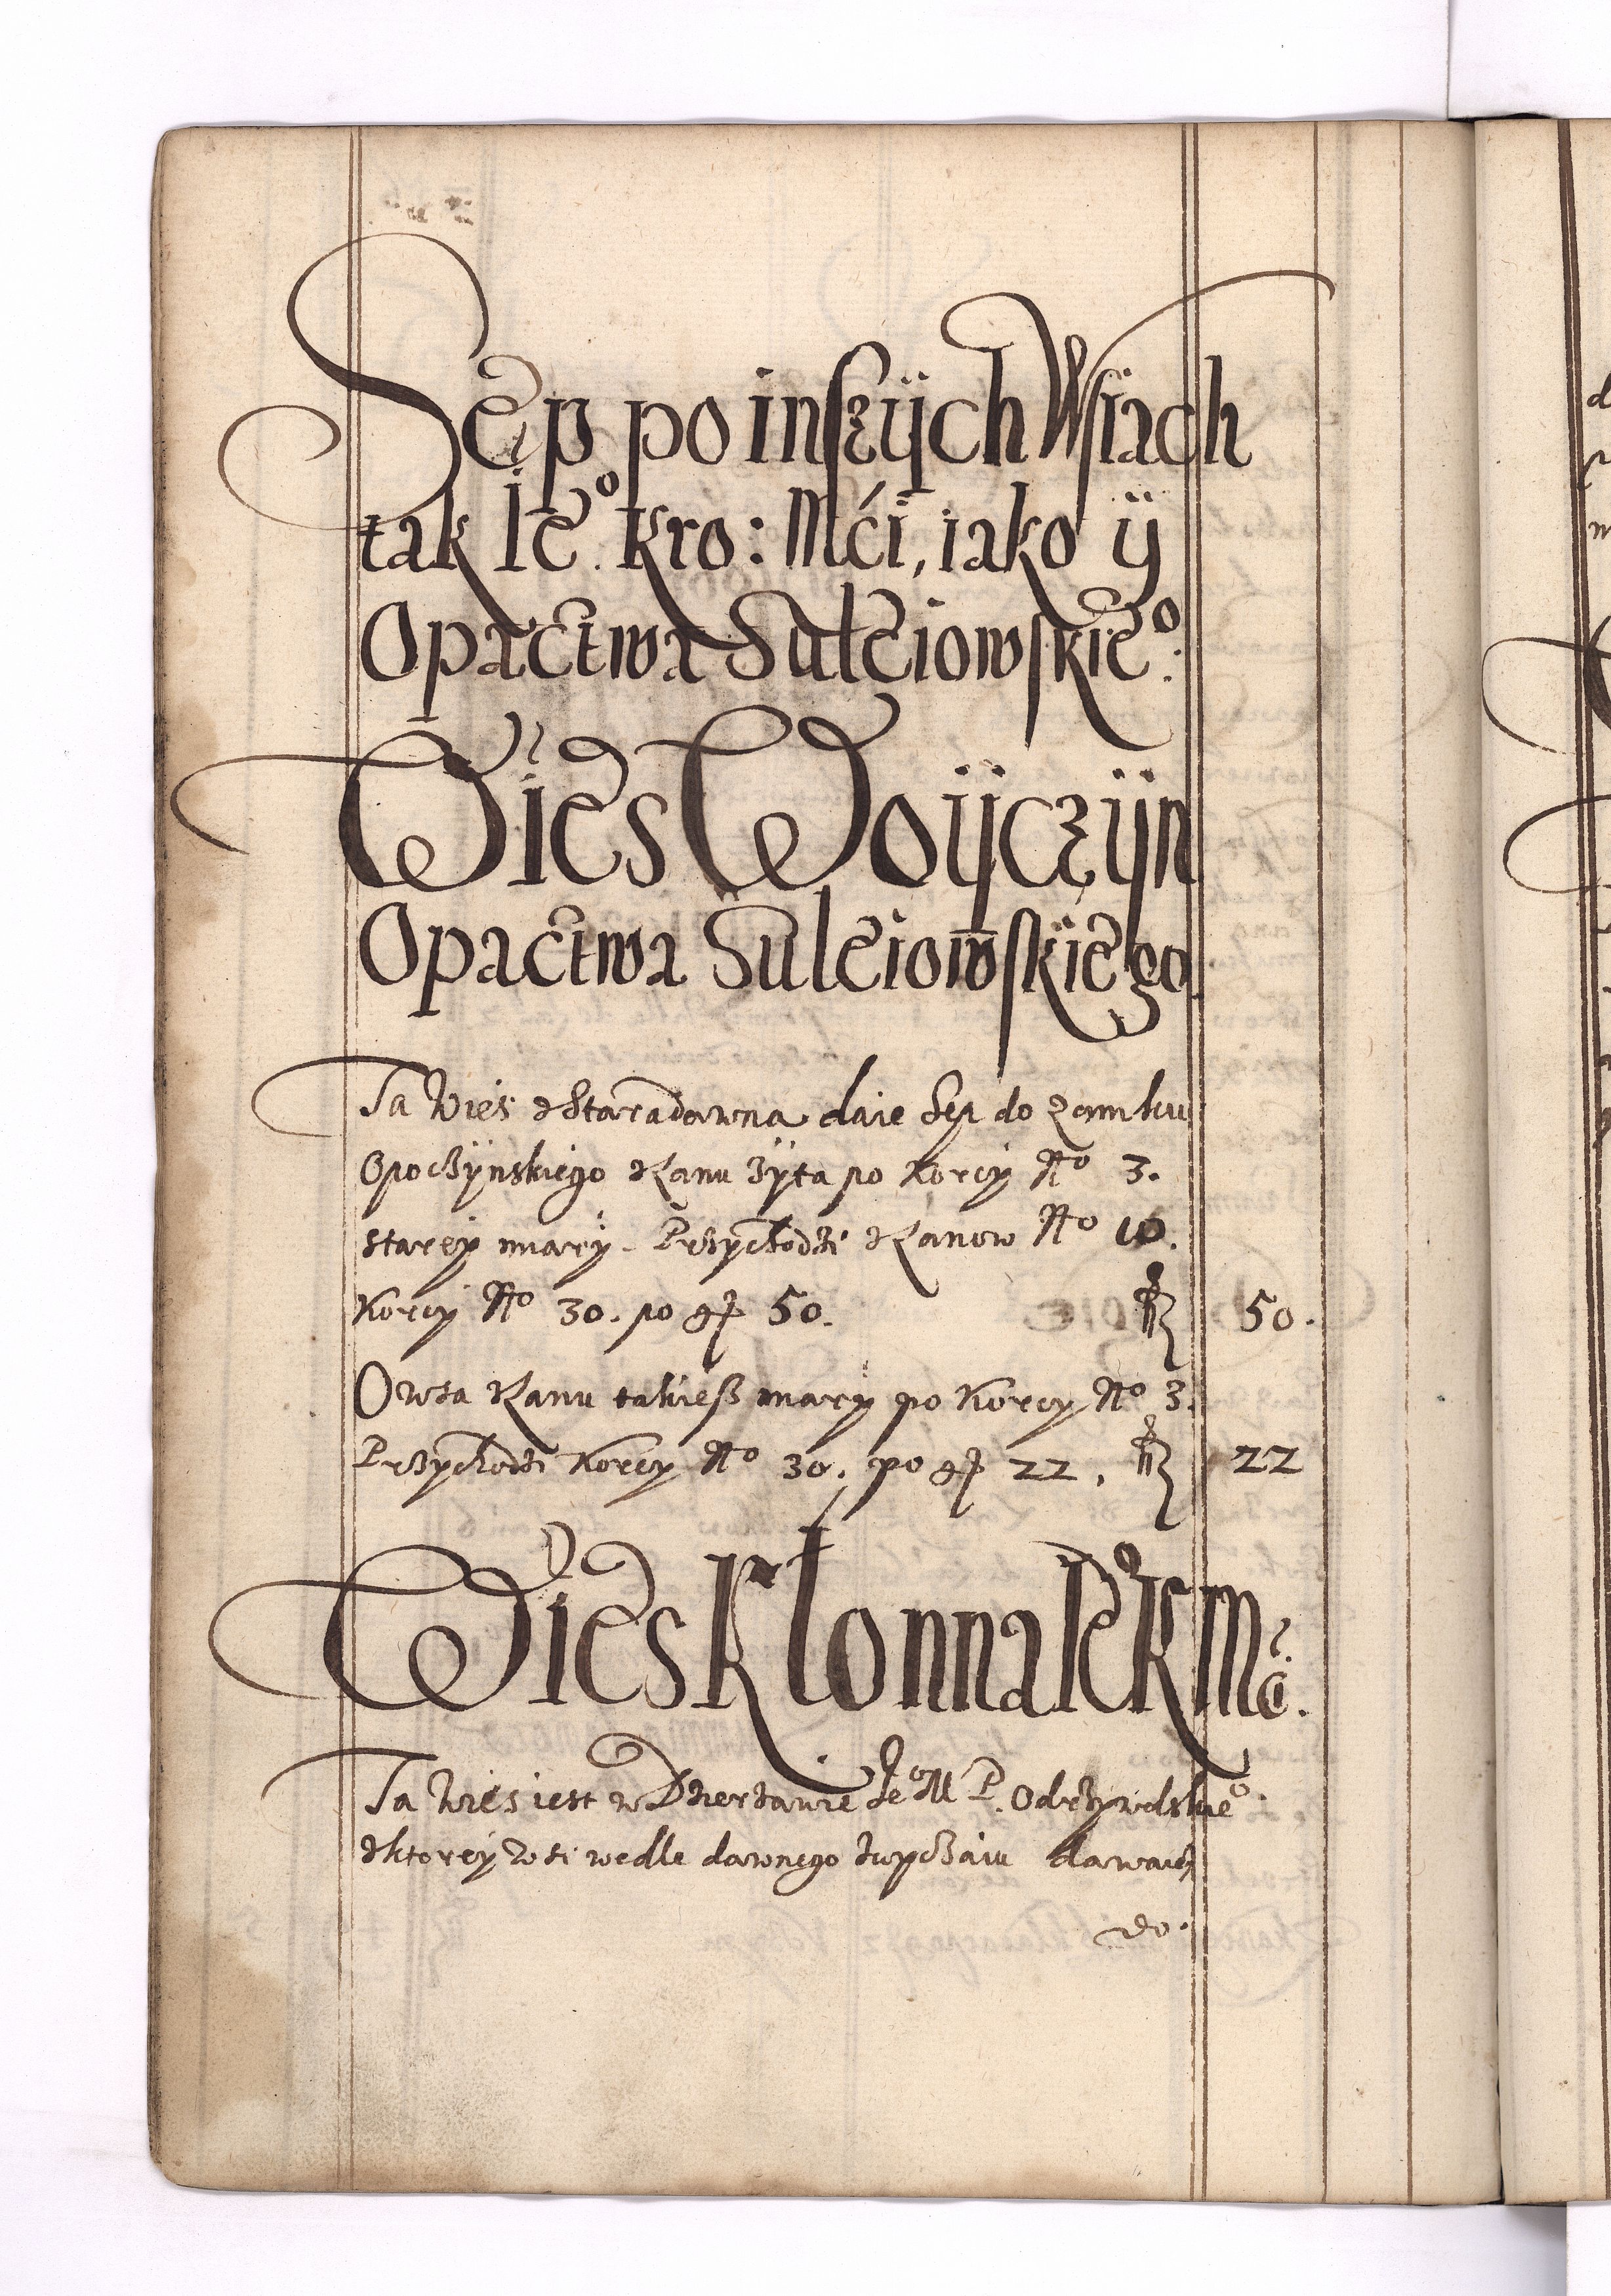 Sęp po inszÿch Wsiach
tak Ie.º Kro: Mći, iako ÿ
Opactwa Suleiowskieº.
Wies Woÿczÿn
Opactwa Suleiowskiego
Ta Wies z Staradawna daie Sep do zamku
Opoczÿnskiego z Łanu żÿta po Korcÿ Nº 3.
starey miarÿ. Przychodzi z Łanow Nº 10.
Korcÿ Nº 30. po gr 50. fl 50.
Owsa z Łanu takiesz miarÿ po Korcy Nº 3.
Przychodzi Korcy Nº 30. po gr 22. fl 22
Wies Kłonna Ieº K Mći.
Ta Wies iest w Dzierzawie Ieº M P. Odrzywolskieº.
z ktorey Wsi wedle dawnego zwyczaiu dawaią
do.